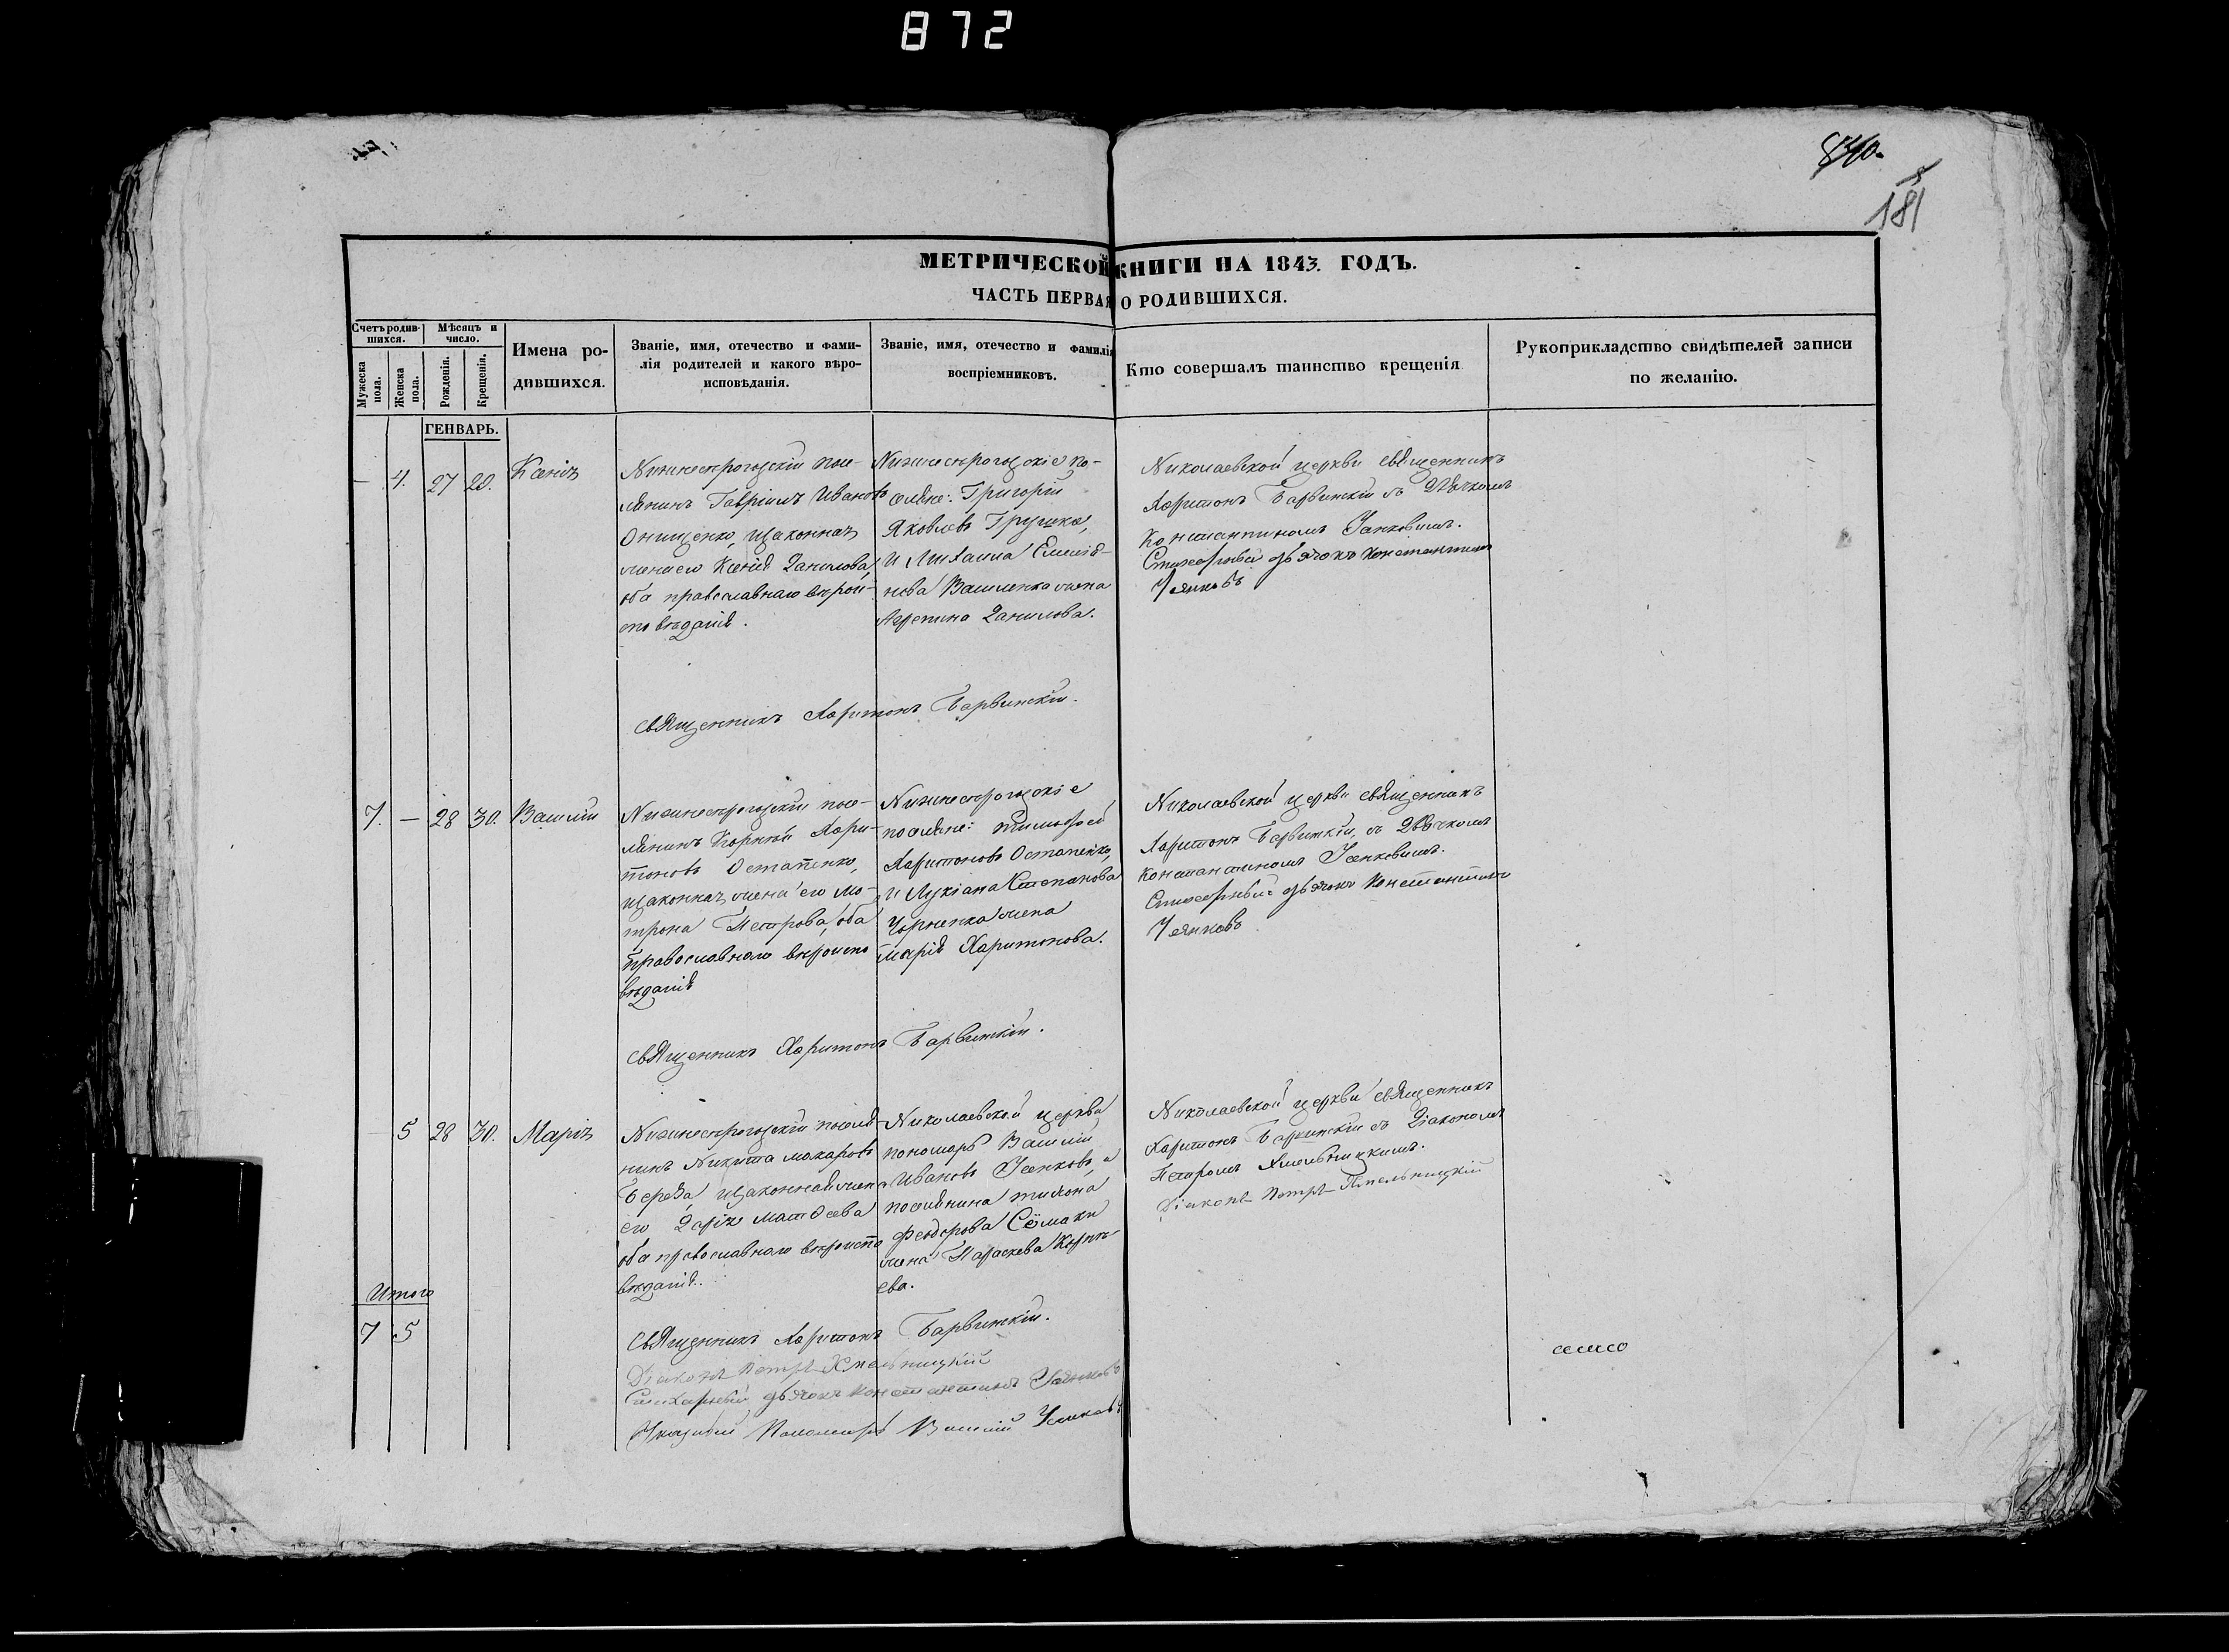 872
840.
181
МЕТРИЧЕСКОЙ КНИГИ НА 1843. ГОДЪ.
ЧАСТЬ ПЕРВАЯ О РОДИВШИХСЯ.
Счетъ родив-
шихся.
Мужеска
пола.
Женска
пола.
Мѣсяцъ и
число.
Рожденія.
Крещенія.
Имена ро-
дившихся.
Званіе, имя, отечество и фами-
лія родителей и какого вѣро-
исповѣданія.
Званіе, имя, отечество и фамилія
воспріемниковъ.
Кто совершалъ таинство крещенія
Рукоприкладство свидѣтелей записи
по желанію.
ГЕНВАРЬ.
— 4. 27 29. Ксенія
Нижнесѣрогозскій посе-
лянинъ Гавріилъ Ивановъ
Онищенко, изаконная
жена его Ксенія Данилова,
оба православнаго вѣрои-
сповѣданія.
Нижнесѣрогозскіе по-
селяне: Григорій
Яковлевъ Грушка,
и Михаила Емелья-
нова Василенка жена
Агрепина Данилова.
Николаевской церкви священникъ
Харитонъ Барвинскій съ дьячкомъ
Константиномъ Усенковымъ.
Стихарный дьячокъ Константинъ
Усенковъ
Священникъ Харитонъ Барвинскій.
7. — 28 30. Василій
Нижнесѣрогозскій посе-
лянинъ Корнѣй Хари-
тоновъ Остапенко,
изаконная жена его Мо-
трона Петрова, оба
православнаго вѣроиспо
вѣданія
Нижнесѣрогозскіе
поселяне: Тимофей
Харитоновъ Остапенко,
и Лукіана Степанова
Чорненка жена
Марія Харитонова.
Николаевской церкви священникъ
Харитонъ Барвинскій, съ дьячкомъ
Константиномъ Усенковымъ.
Стихарный дьячокъ Константинъ
Усенковъ
Священникъ Харитонъ Барвинскій.
5 28 30. Марія
Нижнесѣрогозскій поселя-
нинъ Никита Макаровъ
Береза, изаконная жена
его Дарія Матѳеева
оба православнаго вѣроиспо
вѣданія.
Николаевской церкви
пономарь Василій
Ивановъ Усенковъ, и
поселянина Тихона
Феодорова Сёмаки
жена Параскева Корнѣ-
ева.
Николаевской церкви священникъ
Харитонъ Барвинскій съ Діакономъ
Петромъ Хмельницкимъ.
Діаконъ Петръ Хмельницкій
Итого
7 5
Священникъ Харитонъ Барвинскій.
Діаконъ Петръ Хмельницкій
Стихарный дьячокъ Константинъ Усенковъ
Указный Пономарь Василій Усенковъ